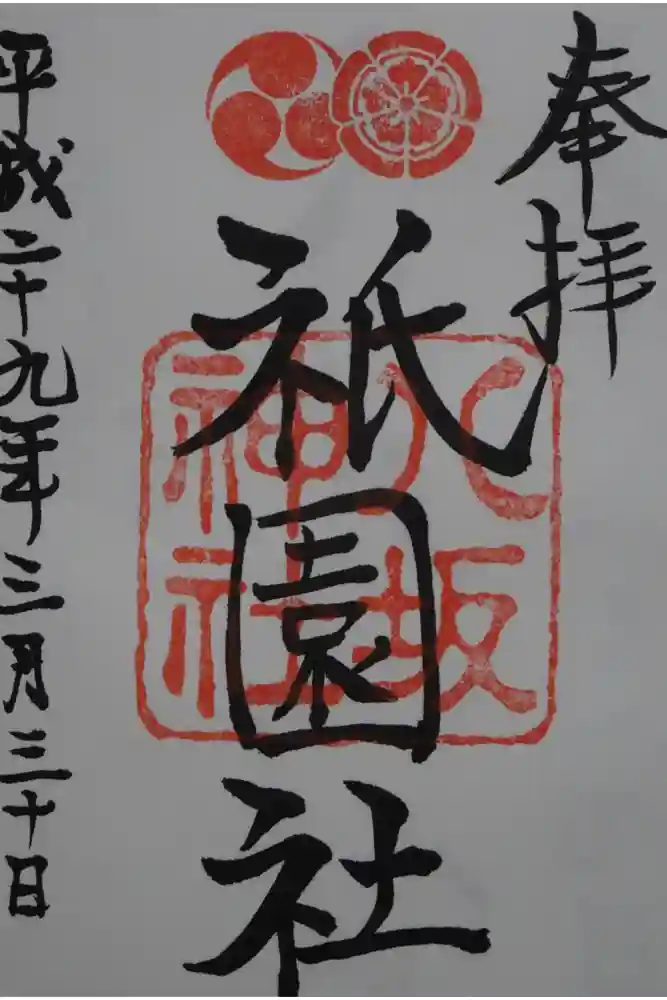 奉拝
祇園社
八坂
神社
平成二十九年三月三十日